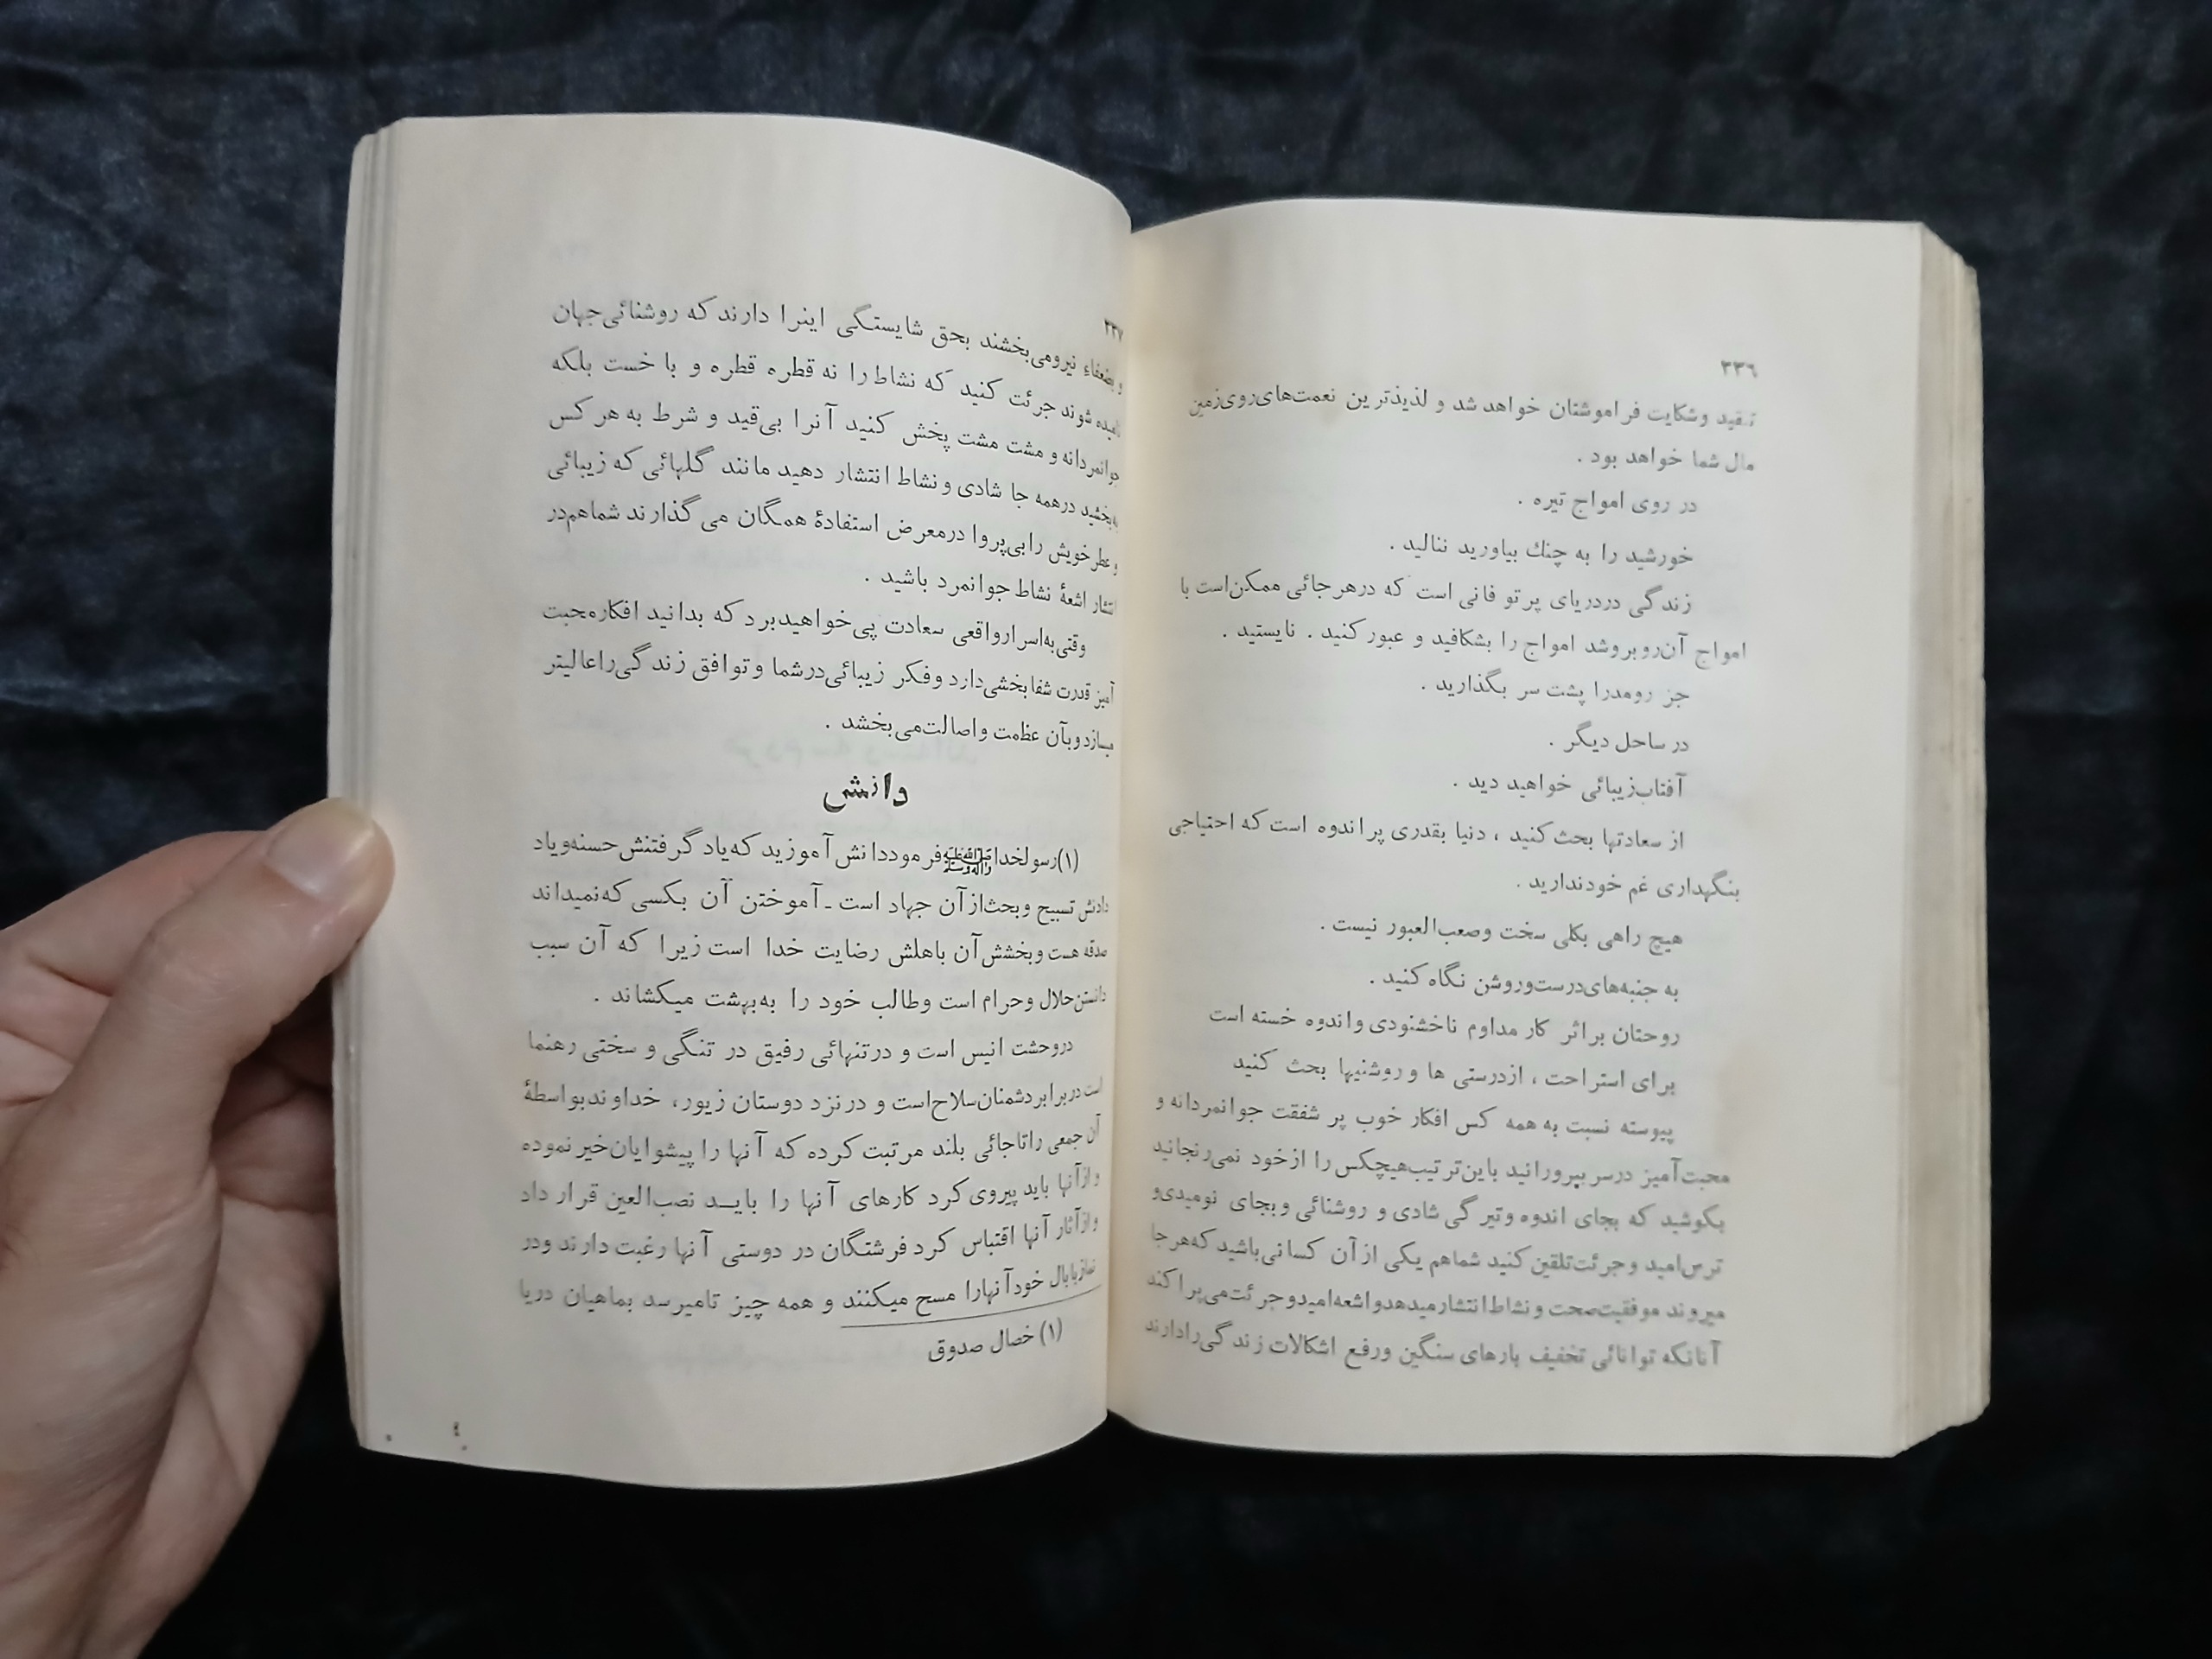 ٣٣٦
تنقید وشکایت فراموشتان خواهد شد و لذیذترین نعمت‌های‌روی‌زمین
مال شما خواهد بود .
در روی امواج تیره .
خورشید را به چنك بیاورید ننالید .
زندگی دردریای پرتو فانی است که درهرجائی ممکن‌است با
امواج آن‌روبروشد امواج را بشکافید و عبور کنید . نایستید .
جز رومدرا پشت سر بگذارید .
در ساحل دیگر .
آفتاب‌زیبائی خواهید دید .
از سعادتها بحث کنید ، دنیا بقدری پراندوه است که احتیاجی
بنگهداری غم خودندارید .
هیچ راهی بکلی سخت وصعب‌العبور نیست .
به جنبه‌های‌درست‌وروشن نگاه کنید .
روحتان براثر کار مداوم ناخشنودی واندوه خسته است
برای استراحت ، ازدرستی ها و روشنیها بحث کنید
پیوسته نسبت به همه کس افکار خوب پر شفقت جوانمردانه و
محبت‌آمیز درسر بپرورانید باین‌ترتیب‌هیچکس را ازخود نمی‌رنجانید
بکوشید که بجای اندوه وتیرگی شادی و روشنائی وبجای نومیدی‌و
ترس‌امید وجرئت‌تلقین‌کنید شماهم یکی ازآن کسانی‌باشید که‌هرجا
میروند موفقیت‌صحت ونشاط‌انتشارمیدهدواشعه‌امیدوجرئت‌می‌پراکند
آنانکه توانائی تخفیف بارهای سنگین ورفع اشکالات زندگی‌رادارند
٣٣٧
و بضعفاء نیرومی‌بخشند بحق شایستگی اینرا دارند که روشنائی‌جهان
نامیده شوند جرئت کنید که نشاط را نه قطره قطره و با خست بلکه
جوانمردانه و مشت مشت پخش کنید آنرا بی‌قید و شرط به هرکس
به‌بخشید درهمه جا شادی ونشاط انتشار دهید مانند گلهائی که زیبائی
و عطرخویش رابی‌پروا درمعرض استفادهٔ همگان می‌گذارند شماهم‌در
انتشار اشعهٔ نشاط جوانمرد باشید .
وقتی‌به‌اسرارواقعی سعادت پی‌خواهیدبرد که بدانید افکارمحبت
آمیز قدرت شفابخشی‌دارد وفکر زیبائی‌درشما وتوافق زندگی‌راعالیتر
میسازدوبآن عظمت واصالت‌می‌بخشد .
دانش
(١)رسولخداﷺفرموددانش‌آموزید که‌یادگرفتنش‌حسنه‌ویاد
دادنش تسبیح وبحث‌ازآن جهاد است ـ آموختن آن بکسی که‌نمیداند
صدقه هست وبخشش‌آن باهلش رضایت خدا است زیرا که آن سبب
دانستن‌حلال وحرام است وطالب خود را به‌بهشت میکشاند .
دروحشت انیس است و درتنهائی رفیق در تنگی و سختی رهنما
است دربرابردشمنان‌سلاح‌است و درنزد دوستان زیور، خداوندبواسطهٔ
آن جمعی راتاجائی بلند مرتبت کرده که آنها را پیشوایان‌خیرنموده
و ازآنها باید پیروی کرد کارهای آنها را بایـد نصب‌العین قرار داد
و ازآثار آنها اقتباس کرد فرشتگان در دوستی آنها رغبت دارند ودر
نمازبابال خودآنهارا مسح میکنند و همه چیز تامیرسد بماهیان دریا
(١) خصال صدوق